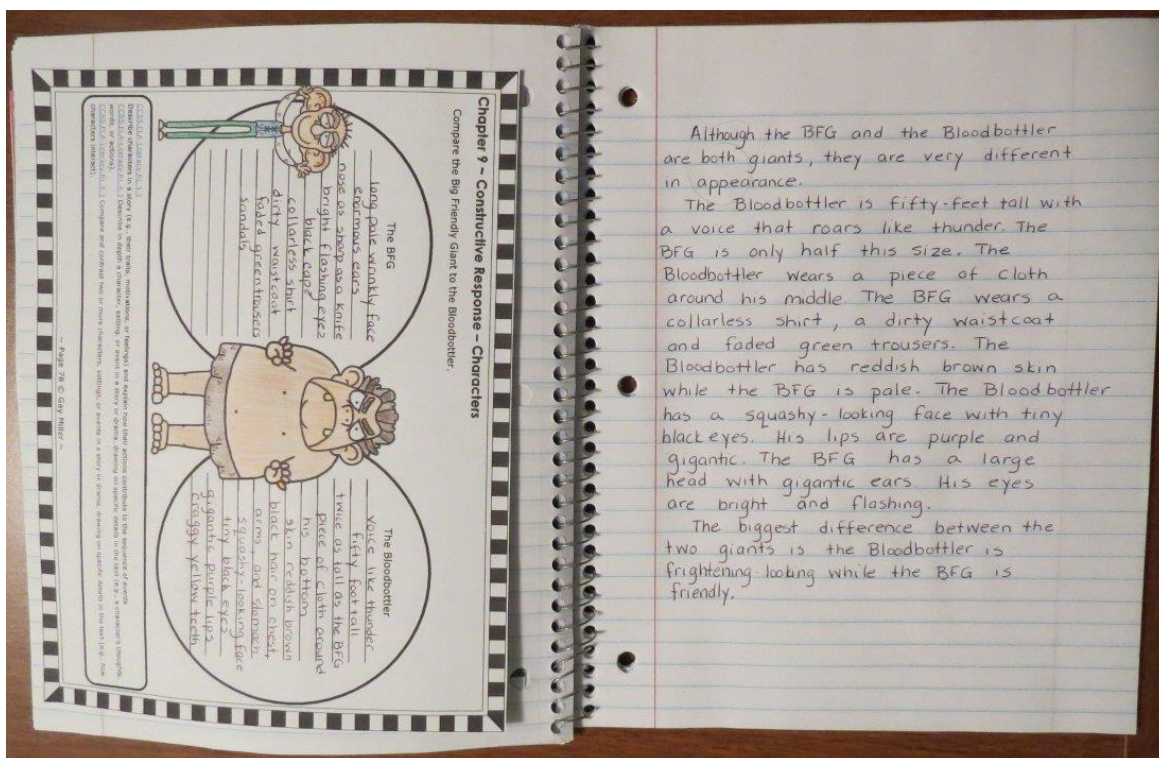 Chapter 9 ~ Constructive Response – Characters
Compare the Big Friendly Giant to the Bloodbottler.
The BFG
long pale wrinkly face
enormous ears
nose as sharp as a knife
bright flashing eyes
black cape
collarless shirt
dirty waistcoat
faded green trousers
sandals
The Bloodbottler
voice like thunder
fifty foot tall
twice as tall as the BFG
piece of cloth around
his bottom
skin reddish brown
black hair on chest,
arms, and stomach
squashy-looking face
tiny black eyes
gigantic purple lips
craggy yellow teeth
Describe characters in a story (e.g., their traits, motivations, or feelings) and explain how their actions contribute to the sequence of events.
Describe in depth a character, setting, or event in a story or drama, drawing on specific details in the text (e.g., a character's thoughts,
words, or actions).
Compare and contrast two or more characters, settings, or events in a story or drama, drawing on specific details in the text (e.g., how
characters interact).
~ Page 78 © Gay Miller ~
Although the BFG and the Bloodbottler
are both giants, they are very different
in appearance.
The Bloodbottler is fifty-feet tall with
a voice that roars like thunder. The
BFG is only half this size. The
Bloodbottler wears a piece of cloth
around his middle. The BFG wears a
collarless shirt, a dirty waistcoat
and faded green trousers. The
Bloodbottler has reddish brown skin
while the BFG is pale. The Bloodbottler
has a squashy-looking face with tiny
black eyes. His lips are purple and
gigantic. The BFG has a large
head with gigantic ears. His eyes
are bright and flashing.
The biggest difference between the
two giants is the Bloodbottler is
frightening-looking while the BFG is
friendly.